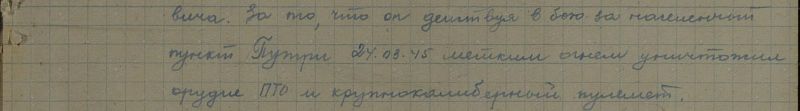 вича. За то, что он действуя в бою за населенный
пункт 24.03.45 метким огнем уничтожил
орудие ПТО и крупнокалиберный пулемет.